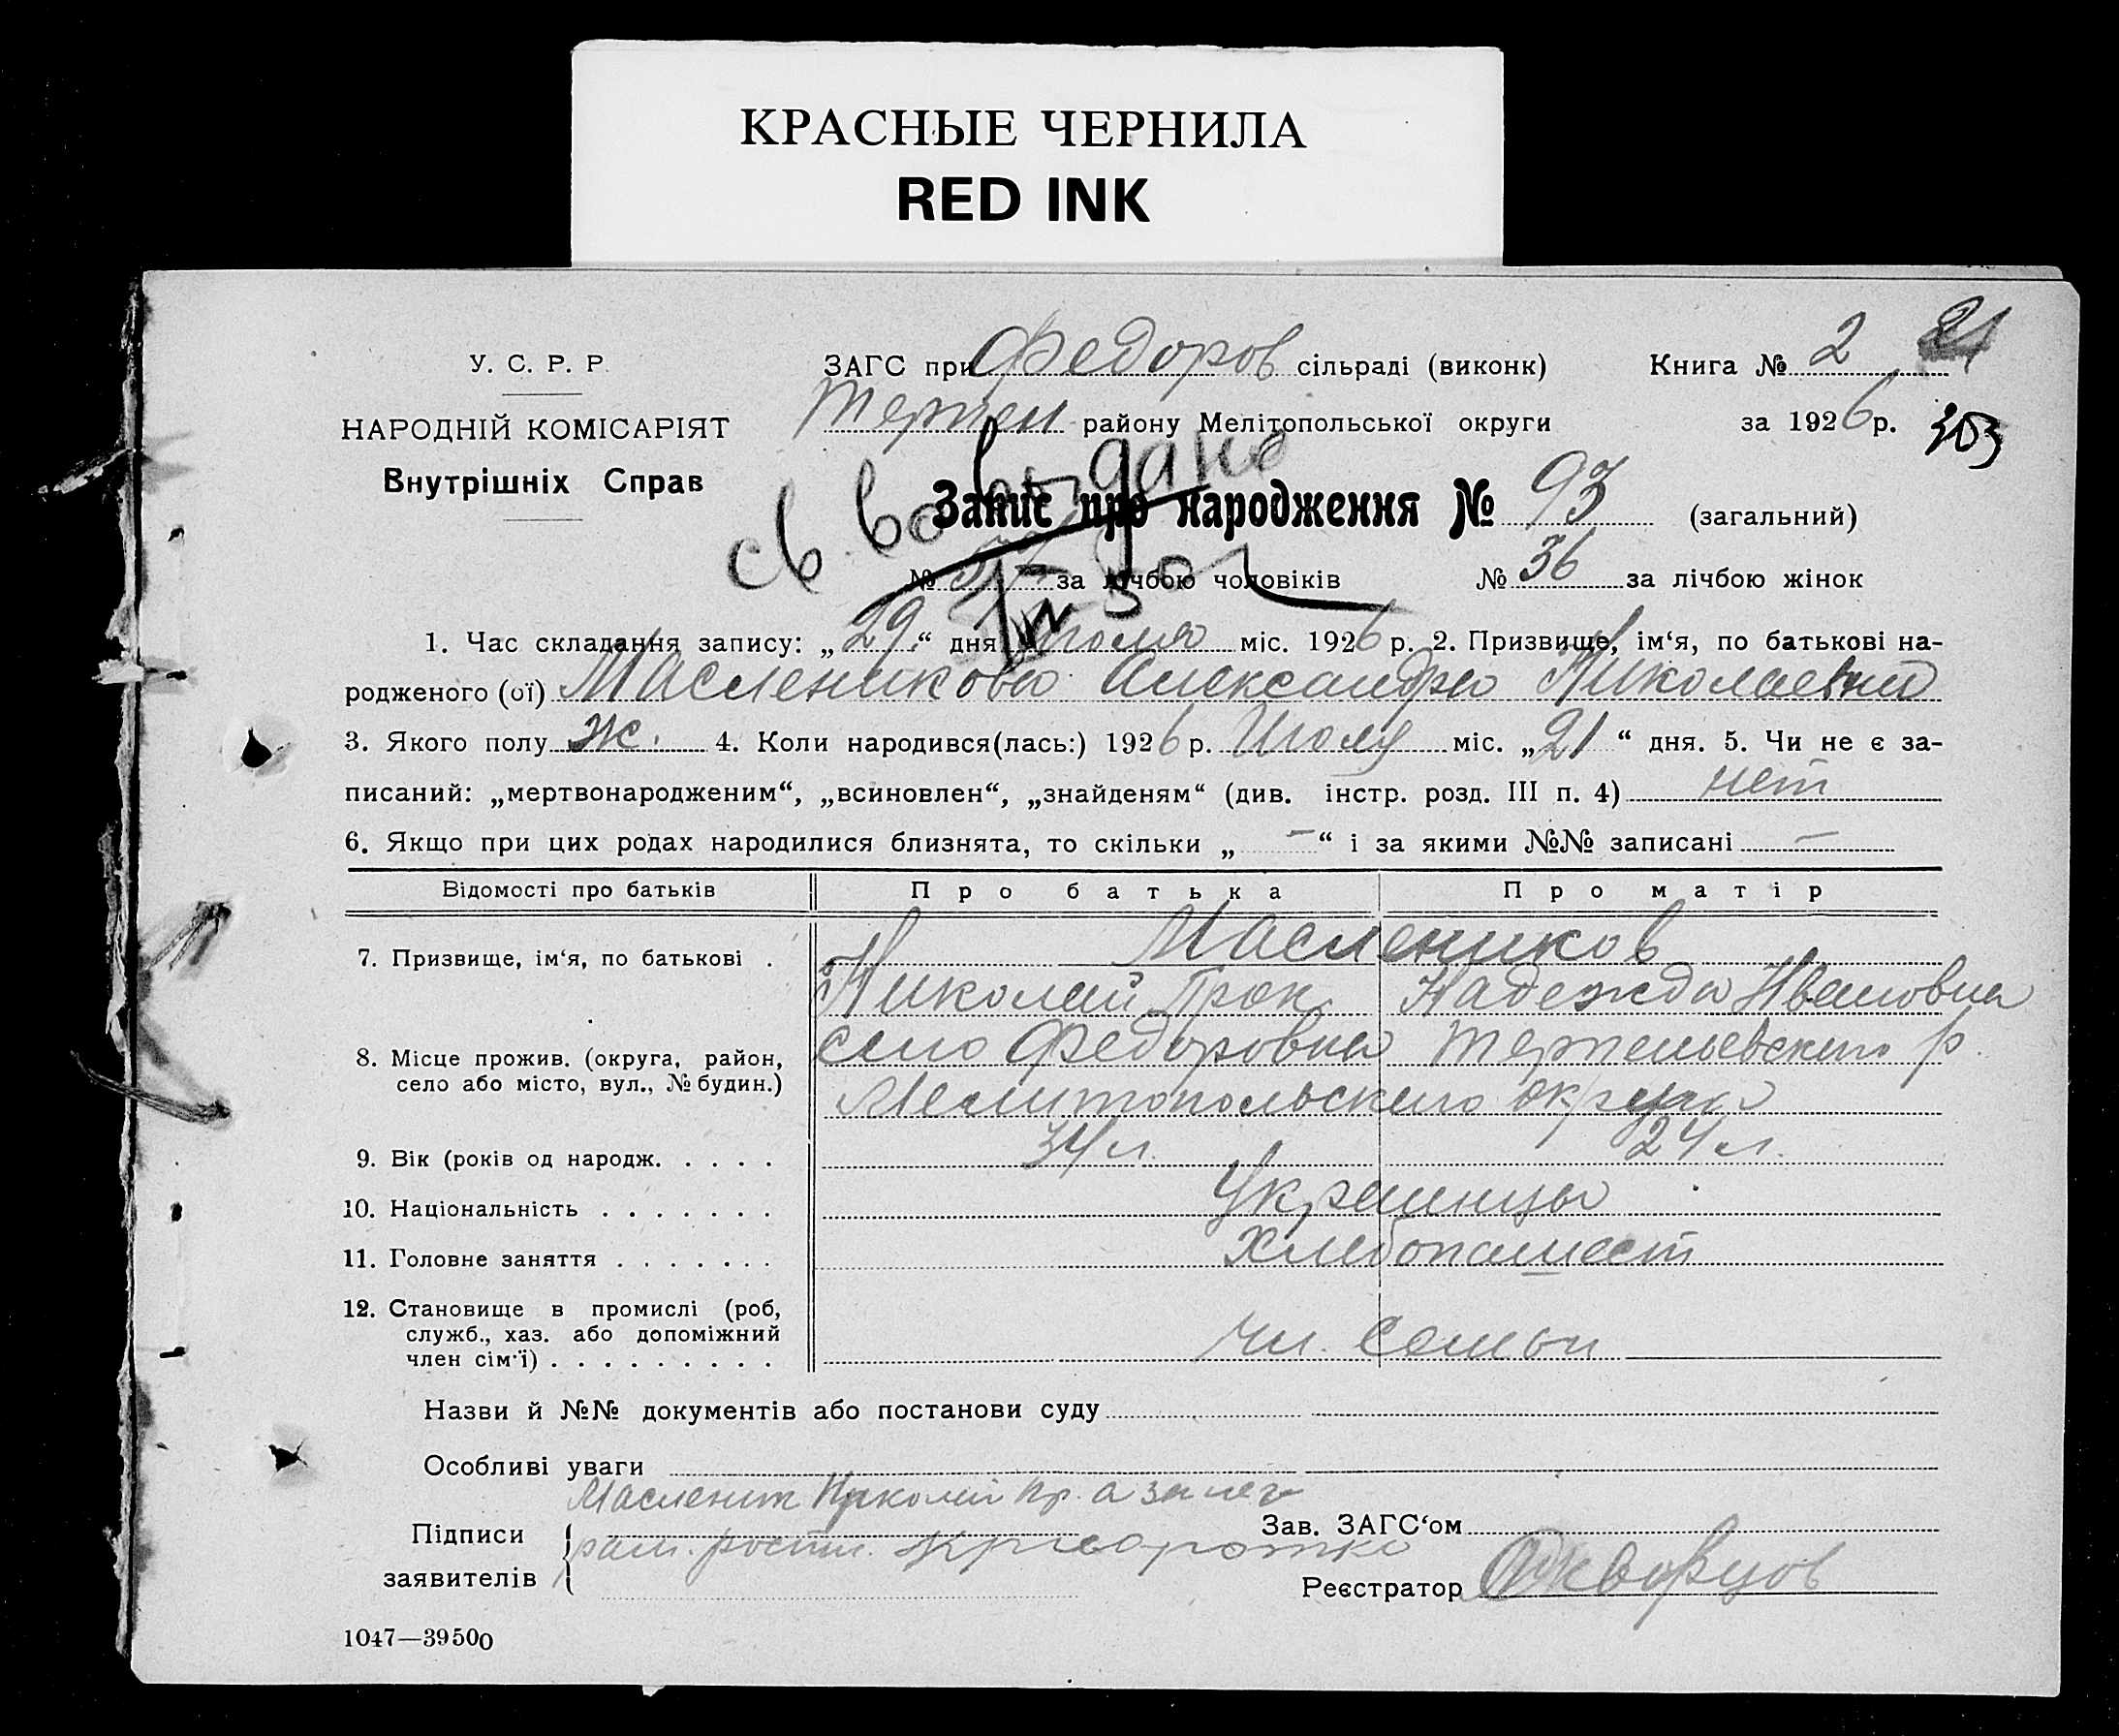 КРАСНЫЕ ЧЕРНИЛА
RED INK
У. С. Р. Р.
НАРОДНІЙ КОМІСАРІЯТ
Внутрішніх Справ
ЗАГС при Федоров сільраді (виконк)
Терпен району Мелітопольської округи
Книга № 2 21
за 1926 р. 303
св во выдано
Запис про народження № 93 (загальний)
№ 57 за лічбою чоловіків № 36 за лічбою жінок
1. Час складання запису: „29“ дня июля міс. 1926 р. 2. Призвище, ім‘я, по батькові на-
родженого (ої) Масленикова Александра Николаевна
3. Якого полу ж. 4. Коли народився(лась:) 1926 р. Июля міс. „21“ дня. 5. Чи не є за-
писаний: „мертвонародженим“, „всиновлен“, „знайденям“ (див. інстр. розд. III п. 4) нет
6. Якщо при цих родах народилися близнята, то скільки „ — “ і за якими №№ записані —
Відомості про батьків Про батька Про матір
7. Призвище, ім‘я, по батькові . Маслеников
Николай Прок. Надежда Ивановна
8. Місце прожив. (округа, район,
село або місто, вул., № будин.)
село Федоровка Терпеньевского р.
Мелитопольского округа
9. Вік (років од народж. . . . . 34 л. 24 л.
10. Національність . . . . . . . Украинцы
11. Головне заняття . . . . . . . Хлебопашест
12. Становище в промислі (роб,
служб., хаз. або допоміжний
член сім‘ї) . . . . . . . . . чл. семьи
Назви й №№ документів або постанови суду
Особливі уваги
Масленик Николай Пр. а за нег
Підписи
заявителів
Зав. ЗАГС‘ом
Реєстратор
1047—39500